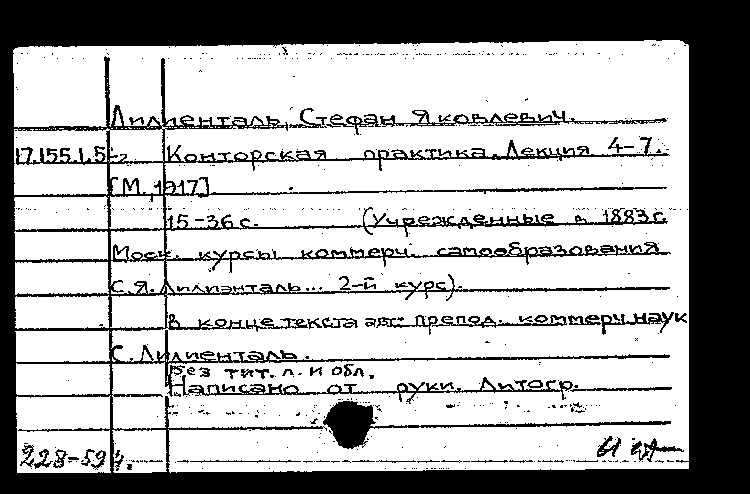 Лилиенталь, Стефан Яковлевич.
17.155.1.5-2 Конторская практика. Лекция 4-7.
[М., 1917].
15-36 с. (Учрежденные в 1883 г.
Моск. курсы коммерч. самообразования
С.Я. Лилиэнталь... 2-й курс).
В конце текста авт: препод. коммерч. наук
С. Лилиенталь.
Без тит. л. и обл.
Написано от руки. Литогр.
228-59 г.